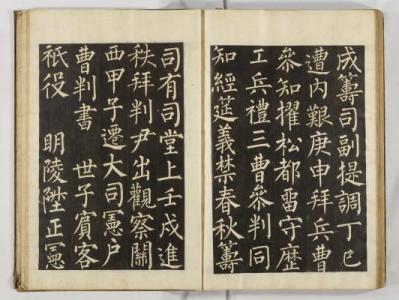 成籌司副提調丁巳
遭內艱庚申拜兵曹
參知擢松都留守歷
工兵禮三曹參判同
知經筵義禁春秋籌
司有司堂上壬戌進
秩拜判尹出觀察關
西甲子遷大司憲戶
曹判書　世子賓客
祇役　明陵陞正憲